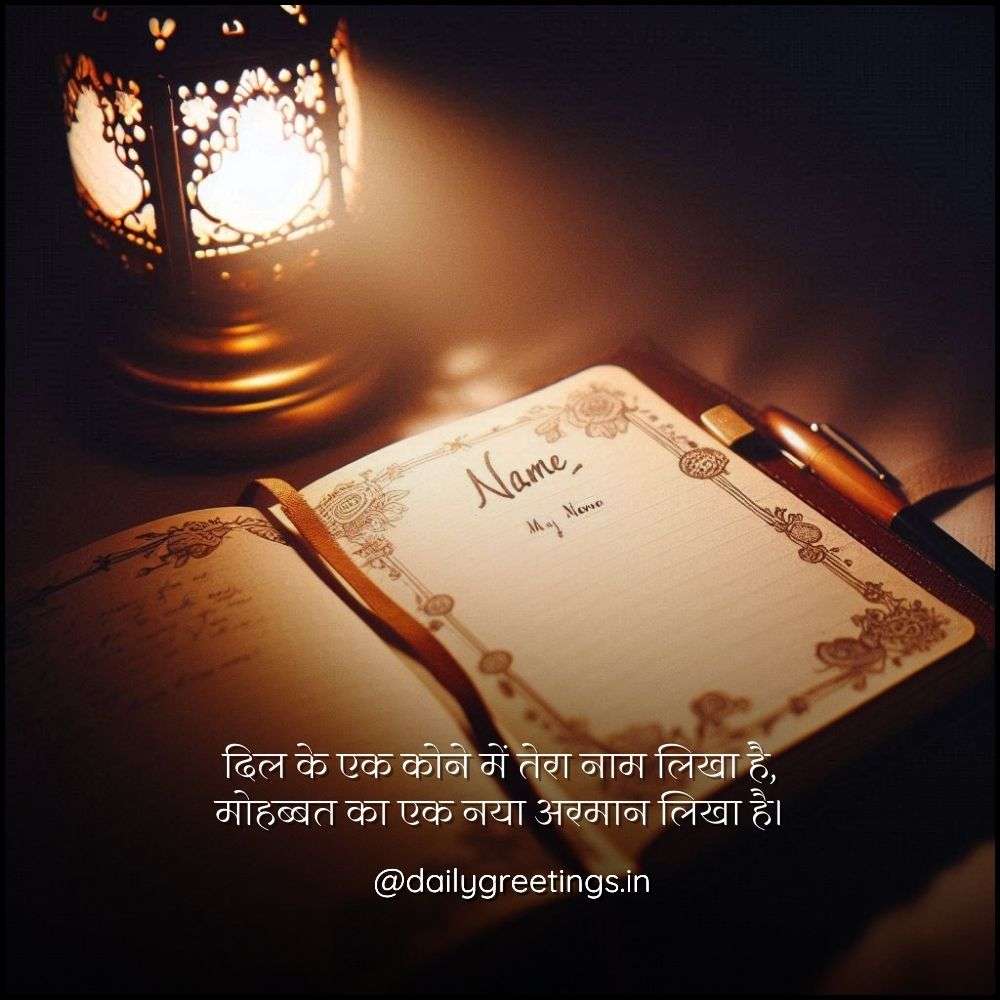 Name
My Name
दिल के एक कोने में तेरा नाम लिखा है,
मोहब्बत का एक नया अरमान लिखा है।
@dailygreetings.in